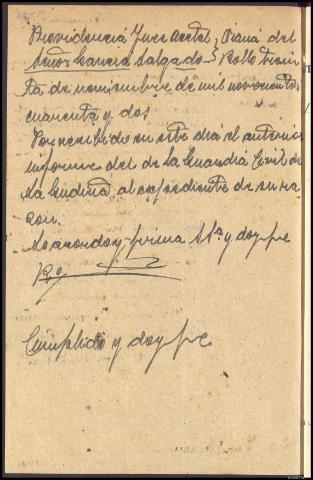 Providencia Juez acctal, Viana del
Señor García Salgado } Bollo trein
ta de noviembre de mil novecientos
cuarenta y dos
Por recibido en este día el anterior
informe del de la Guardia Civil de
La Gudiña, al expediente de su ra
zon.
Lo acordo y firma S Sª y doy fe
Cumplido y doy fe